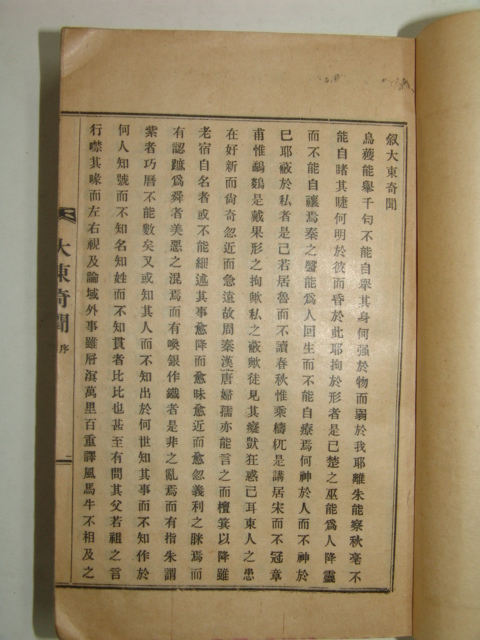 叙大東奇聞
烏獲能擧千匀不能自擧其身何强於物而弱於我耶離朱能察秋毫不
能自睹其睫何明於彼而昏於此耶拘於形者是已楚之巫能爲人降靈
而不能自禳焉秦之醫能爲人回生而不能自療焉何神於人而不神於
已耶蔽於私者是已若居魯而不讀春秋惟乘檮杌是講居宋而不冠章
甫惟鷸鶡是戴果形之拘歟私之蔽歟徒見其癡獃狂惑已耳東人之患
在好新而尙奇忽近而急遠故周秦漢唐婦孺亦能言之而檀箕以降雖
老宿自名者或不能細述其事愈降而愈昧愈近而愈忽義利之眯焉而
有認蹠爲舜者美惡之混焉而有喚銀作鐵者是非之亂焉而有指朱謂
紫者巧曆不能數矣又或知其人而不知出於何世知其事而不知作於
何人知號而不知名知姓而不知貫者比比也甚至有問其父若祖之言
行噤其喙而左右視及論域外事雖層溟萬里百重譯風馬牛不相及之
大東奇聞 序 二